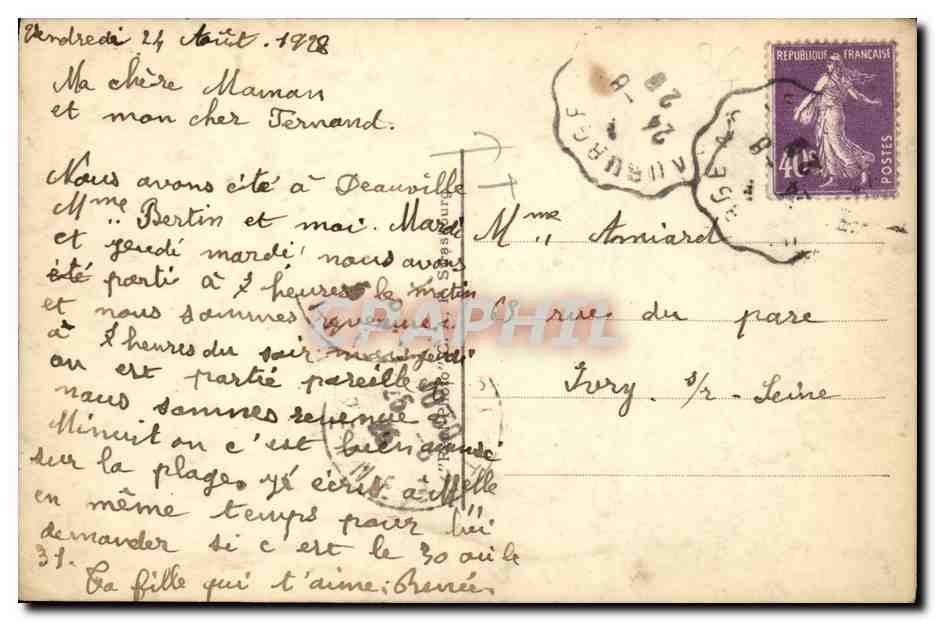 Vendredi 24 Août. 1928
Ma chère Maman
et mon cher Fernand.
Nous avons été à Deauville
Mme Bertin et moi. Mardi
et jeudi mardi nous avons
été parti à 7 heures le matin
et nous sommes revenue
à 7 heures du soir mais jeudi
on est partie pareille
nous sommes revenue à
Minuit on c'est bien amusé
sur la plage. j'é écris à Melle
en même temps pour lui
demander si c est le 30 ou le
31.
Ta fille qui t'aime: Renée
Strasbourg
REPUBLIQUE FRANÇAISE
40c
POSTES
24 -8
28
Mme Amiard
63 rue du parc
Ivry s/r Seine
CPAPHIL